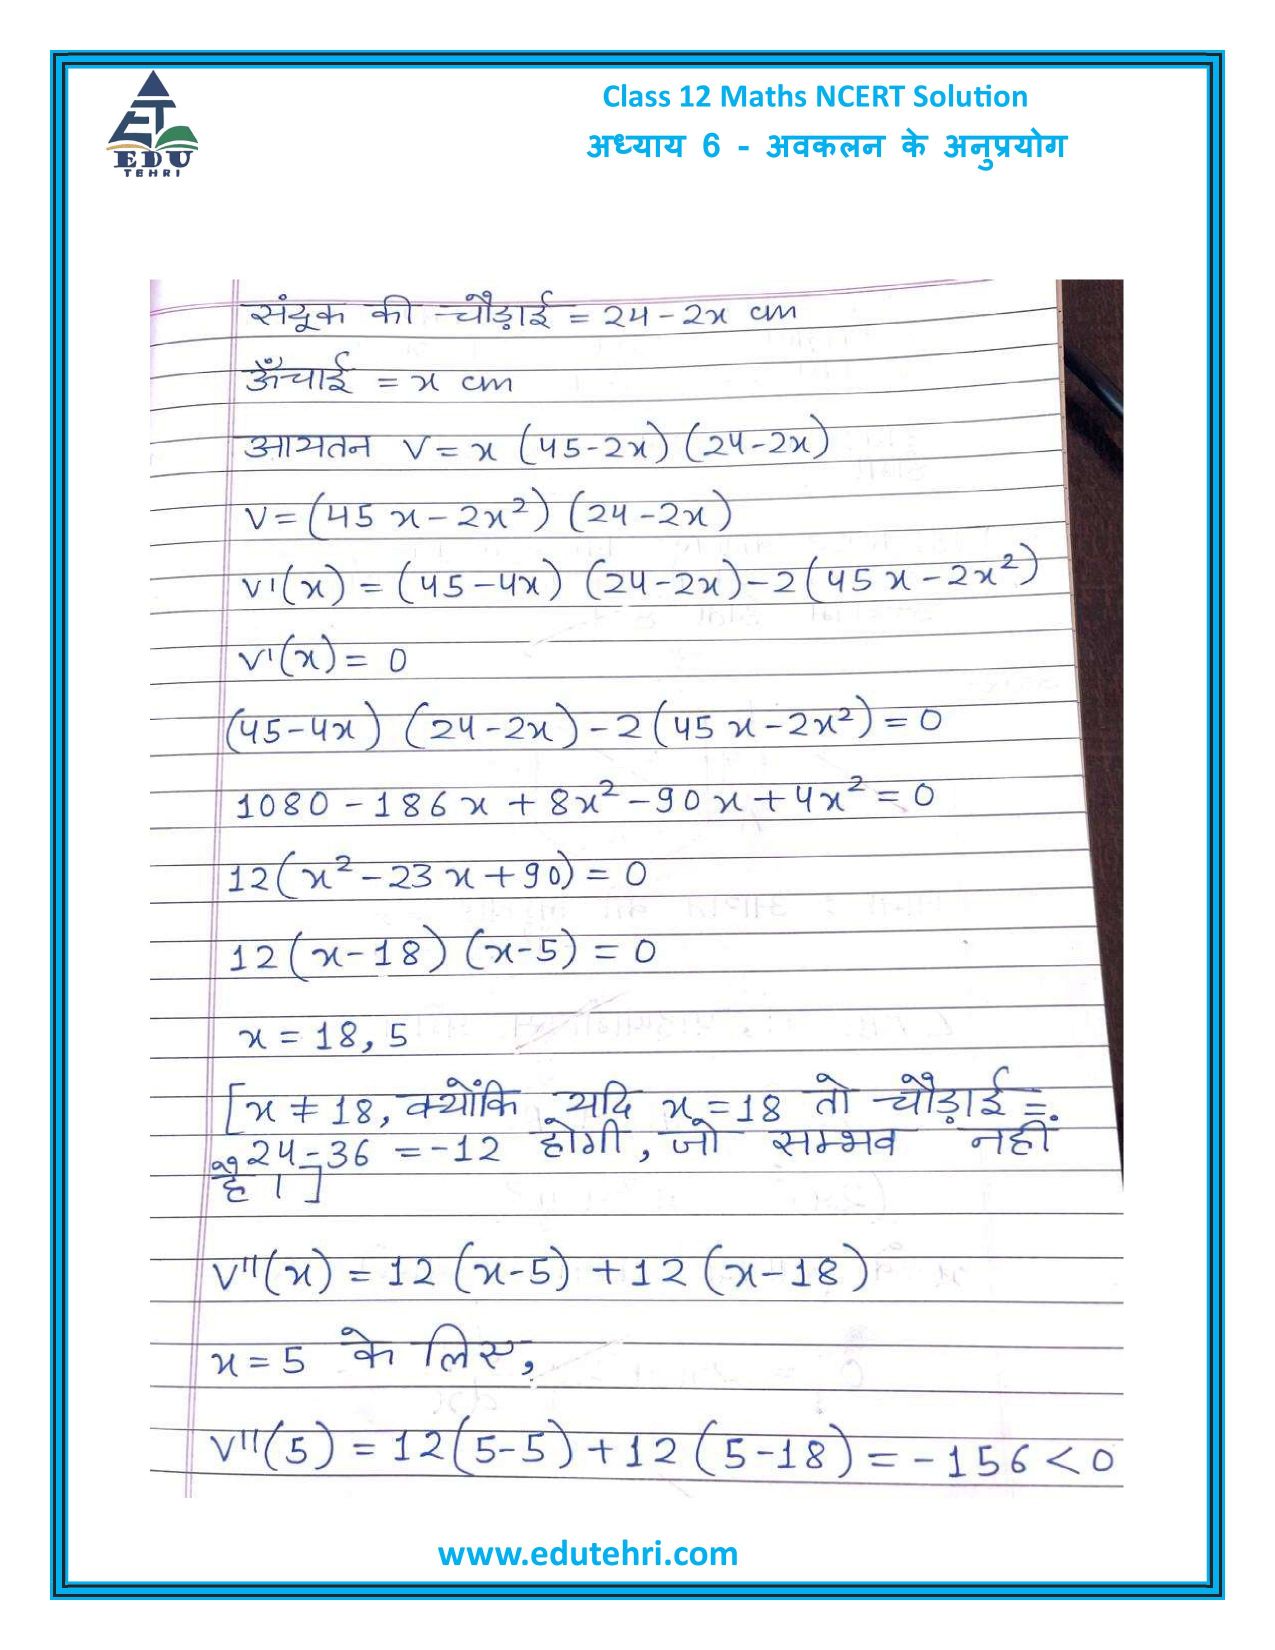 ET
EDU
TEHRI
Class 12 Maths NCERT Solution
अध्याय 6 - अवकलन के अनुप्रयोग
संदूक की चौड़ाई = 24 - 2x cm
ऊँचाई = x cm
आयतन V = x (45-2x) (24-2x)
V = (45x - 2x²) (24-2x)
V'(x) = (45-4x) (24-2x) - 2(45x - 2x²)
V'(x) = 0
(45-4x) (24-2x) - 2(45x - 2x²) = 0
1080 - 186x + 8x² - 90x + 4x² = 0
12(x² - 23x + 90) = 0
12(x-18) (x-5) = 0
x = 18, 5
[x ≠ 18, क्योंकि यदि x = 18 तो चौड़ाई =
24-36 = -12 होगी, जो सम्भव नहीं
है।]
V"(x) = 12(x-5) + 12(x-18)
x = 5 के लिए,
V"(5) = 12(5-5) + 12(5-18) = -156 < 0
www.edutehri.com